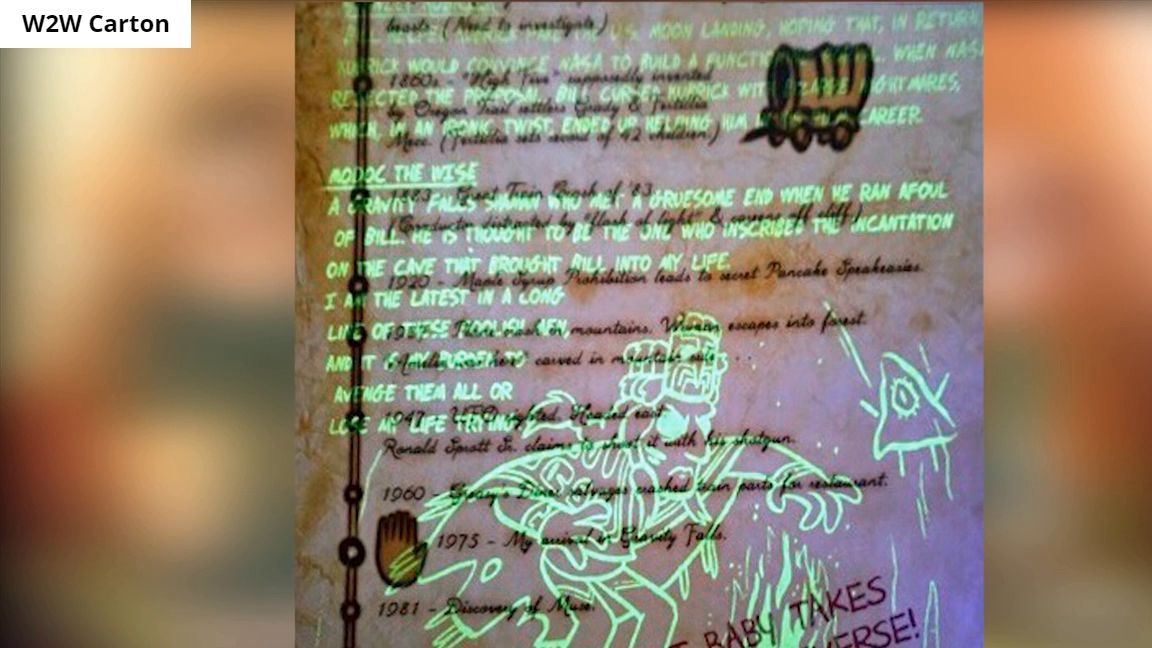 W2W Carton
beasts. (Need to investigate.)
U.S. MOON LANDING, HOPING THAT, IN RETURN,
KUBRICK WOULD CONVINCE NASA TO BUILD A WHEN NASA
1860s - "High Five" supposedly invented
REJECTED THE PROPOSAL, BILL CURSED KUBRICK WITH BIZARRE NIGHTMARES,
by Oregon Trail settlers Grady & Fertilia
WHICH, IN AN IRONIC TWIST, ENDED UP HELPING HIM CAREER.
Mecc. (Fertilia sets record of 42 children)
MODOC THE WISE
1883 - Great Train Crash of '83
A GRAVITY FALLS SHAMAN WHO MET A GRUESOME END WHEN HE RAN AFOUL
(Conductor distracted by "flash of light" & off cliff.)
OF BILL. HE IS THOUGHT TO BE THE ONE WHO INSCRIBED THE INCANTATION
ON THE CAVE THAT BROUGHT BILL INTO MY LIFE.
1920 - Maple Syrup Prohibition leads to secret Pancake Speakeasies.
I AM THE LATEST IN A LONG
LINE OF THESE FOOLISH MEN,
mountains. Woman escapes into forest.
AND IT IS MY BURDEN TO
carved in mountain side...
AVENGE THEM ALL OR
1947 - UFO sighted. Headed east.
LOSE MY LIFE TRYING.
Ronald Sprott Sr. claims to shoot it with his shotgun.
1960 - Greasy's Diner salvages crashed train parts for restaurant.
1975 - My arrival in Gravity Falls.
1981 - Discovery of Muse.
BABY TAKES
VERSE!